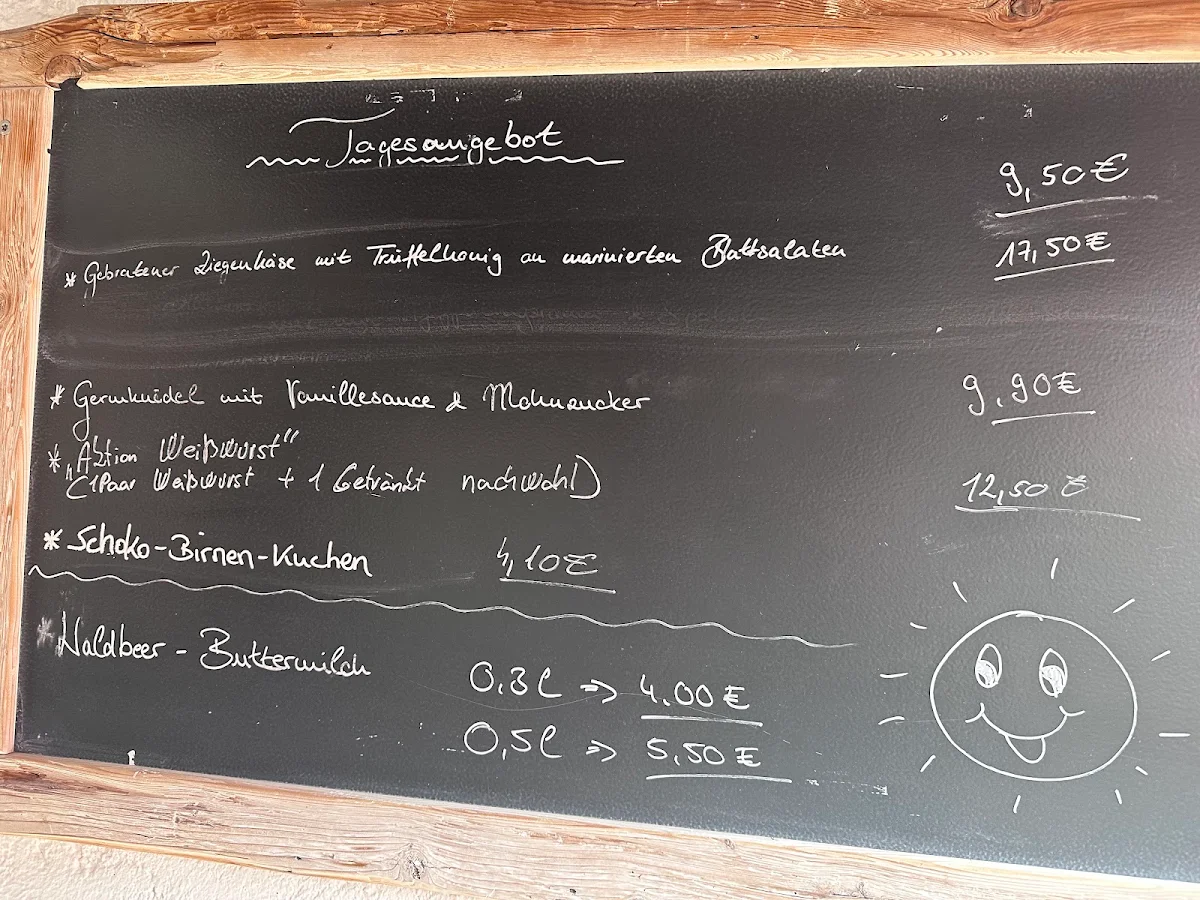 Tagesangebot
9,50€
* Gebratener Ziegenkäse mit Trüffelhonig an marinierten Blattsalaten 17,50€
* Germknödel mit Vanillesauce & Mohnzucker 9,90€
* „Aktion Weißwurst“
(1Paar Weißwurst + 1 Getränkt nachwahl) 12,50€
* Schoko-Birnen-Kuchen 4,10€
* Waldbeer - Buttermilch
0,3l => 4.00€
0,5l => 5,50€